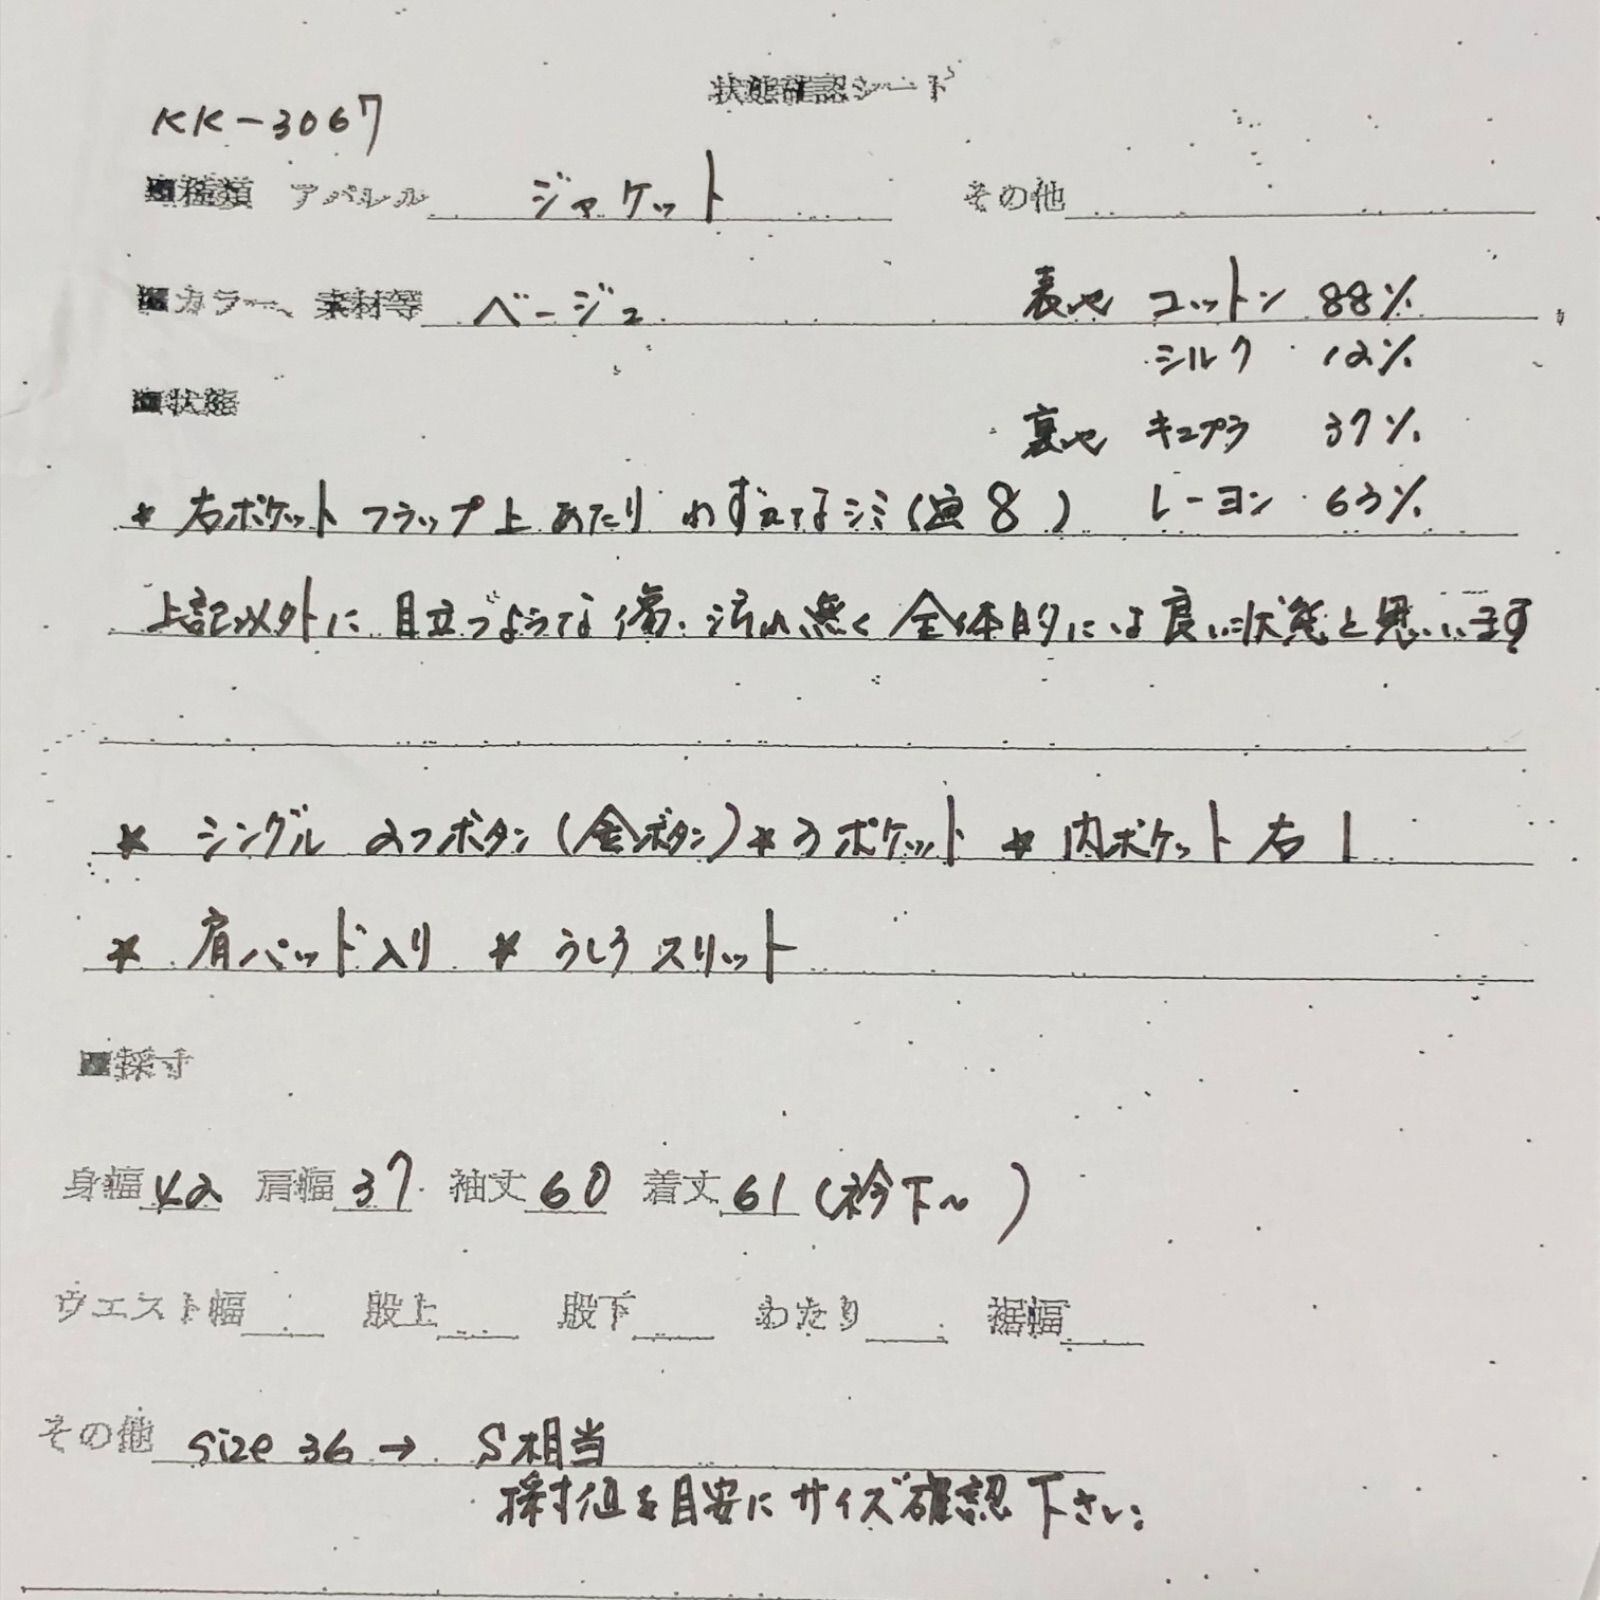 状態確認シート
KK-3067
■種類 アパレル ジャケット その他
■カラー、素材等 ベージュ 表地 コットン 88%
シルク 12%
■状態
裏地 キュプラ 37%
* 右ポケットフラップ上あたり わずかなシミ(画8) レーヨン 63%
上記以外に目立つような傷、汚れ無く全体的には良い状態と思います
* シングル 2つボタン(金ボタン) * 3ポケット * 内ポケット右1
* 肩パッド入り * うしろスリット
■採寸
身幅 42 肩幅 37 袖丈 60 着丈 61 (衿下~ )
ウエスト幅 股上 股下 わたり 裾幅
その他 size 36 → S相当
採寸値を目安にサイズ確認下さい